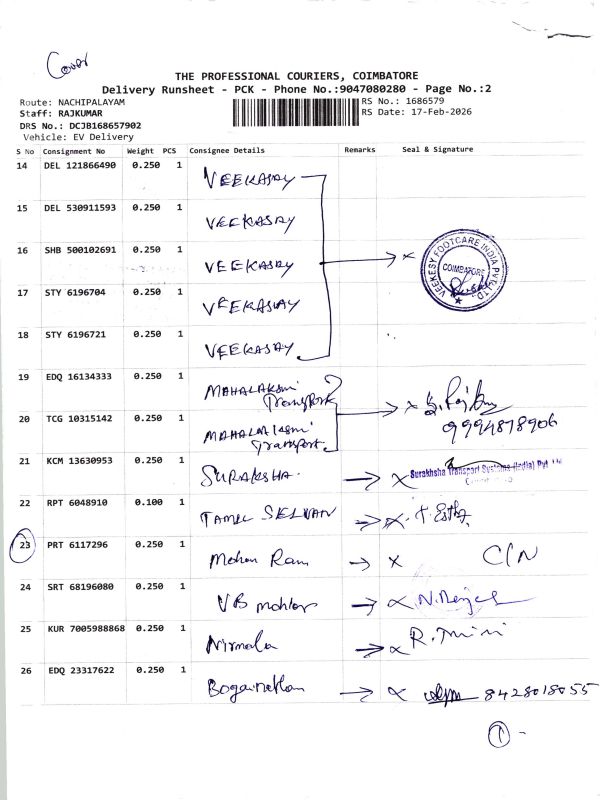 Cover
THE PROFESSIONAL COURIERS, COIMBATORE
Delivery Runsheet - PCK - Phone No.:9047080280 - Page No.:2
Route: NACHIPALAYAM
Staff: RAJKUMAR
DRS No.: DCJB168657902
Vehicle: EV Delivery
RS No.: 1686579
RS Date: 17-Feb-2026
S No Consignment No Weight PCS Consignee Details Remarks Seal & Signature
14 DEL 121866490 0.250 1 VEEKASAY
15 DEL 530911593 0.250 1 VEEKASAY
16 SHB 500102691 0.250 1 VEEKASAY x
VEEKESY FOOTCARE INDIA PVT. LTD
COIMBATORE
17 STY 6196704 0.250 1 VEEKASAY
18 STY 6196721 0.250 1 VEEKASAY
19 EDQ 16134333 0.250 1 MAHALAKSMI Transport x
20 TCG 10315142 0.250 1 MAHALAKSMI Transport 9994878906
21 KCM 13630953 0.250 1 SURAKSHA. x Surakhsha Transport Systems (India) Pvt. Ltd
22 RPT 6048910 0.100 1 TAMIL SELVAN x
23 PRT 6117296 0.250 1 Mohan Ram x C/N
24 SRT 68196080 0.250 1 VB x
25 KUR 7005988868 0.250 1 Nirmala x R.
26 EDQ 23317622 0.250 1 x 8428018055
1 -